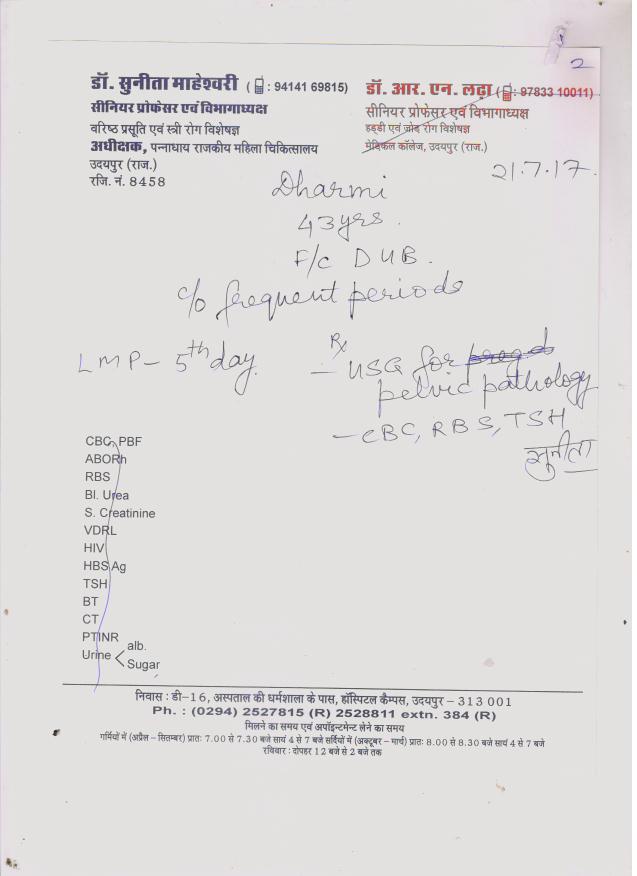 2
डॉ. सुनीता माहेश्वरी ( : 94141 69815)
सीनियर प्रोफेसर एवं विभागाध्यक्ष
वरिष्ठ प्रसूति एवं स्त्री रोग विशेषज्ञ
अधीक्षक, पन्नाधाय राजकीय महिला चिकित्सालय
उदयपुर (राज.)
रजि. नं. 8458
डॉ. आर. एन. लढ़ा ( : 97833 10011)
सीनियर प्रोफेसर एवं विभागाध्यक्ष
हड्डी एवं जोड़ रोग विशेषज्ञ
मेडिकल कॉलेज, उदयपुर (राज.)
21.7.17.
Dharmi
43yrs.
F/c DUB.
c/o frequent periods
LMP- 5th day.
Rx
- USG for
pelvic pathology
- CBC, RBS, TSH
सुनीता
CBC, PBF
ABORh
RBS
Bl. Urea
S. Creatinine
VDRL
HIV
HBS Ag
TSH
BT
CT
PTINR
Urine < alb.
Sugar
निवास : डी-16, अस्पताल की धर्मशाला के पास, हॉस्पिटल कैम्पस, उदयपुर - 313 001
Ph. : (0294) 2527815 (R) 2528811 extn. 384 (R)
मिलने का समय एवं अपॉइन्टमेन्ट लेने का समय
गर्मियों में (अप्रैल - सितम्बर) प्रातः 7.00 से 7.30 बजे सायं 4 से 7 बजे सर्दियों में (अक्टूबर - मार्च) प्रातः 8.00 से 8.30 बजे सायं 4 से 7 बजे
रविवार : दोपहर 12 बजे से 2 बजे तक